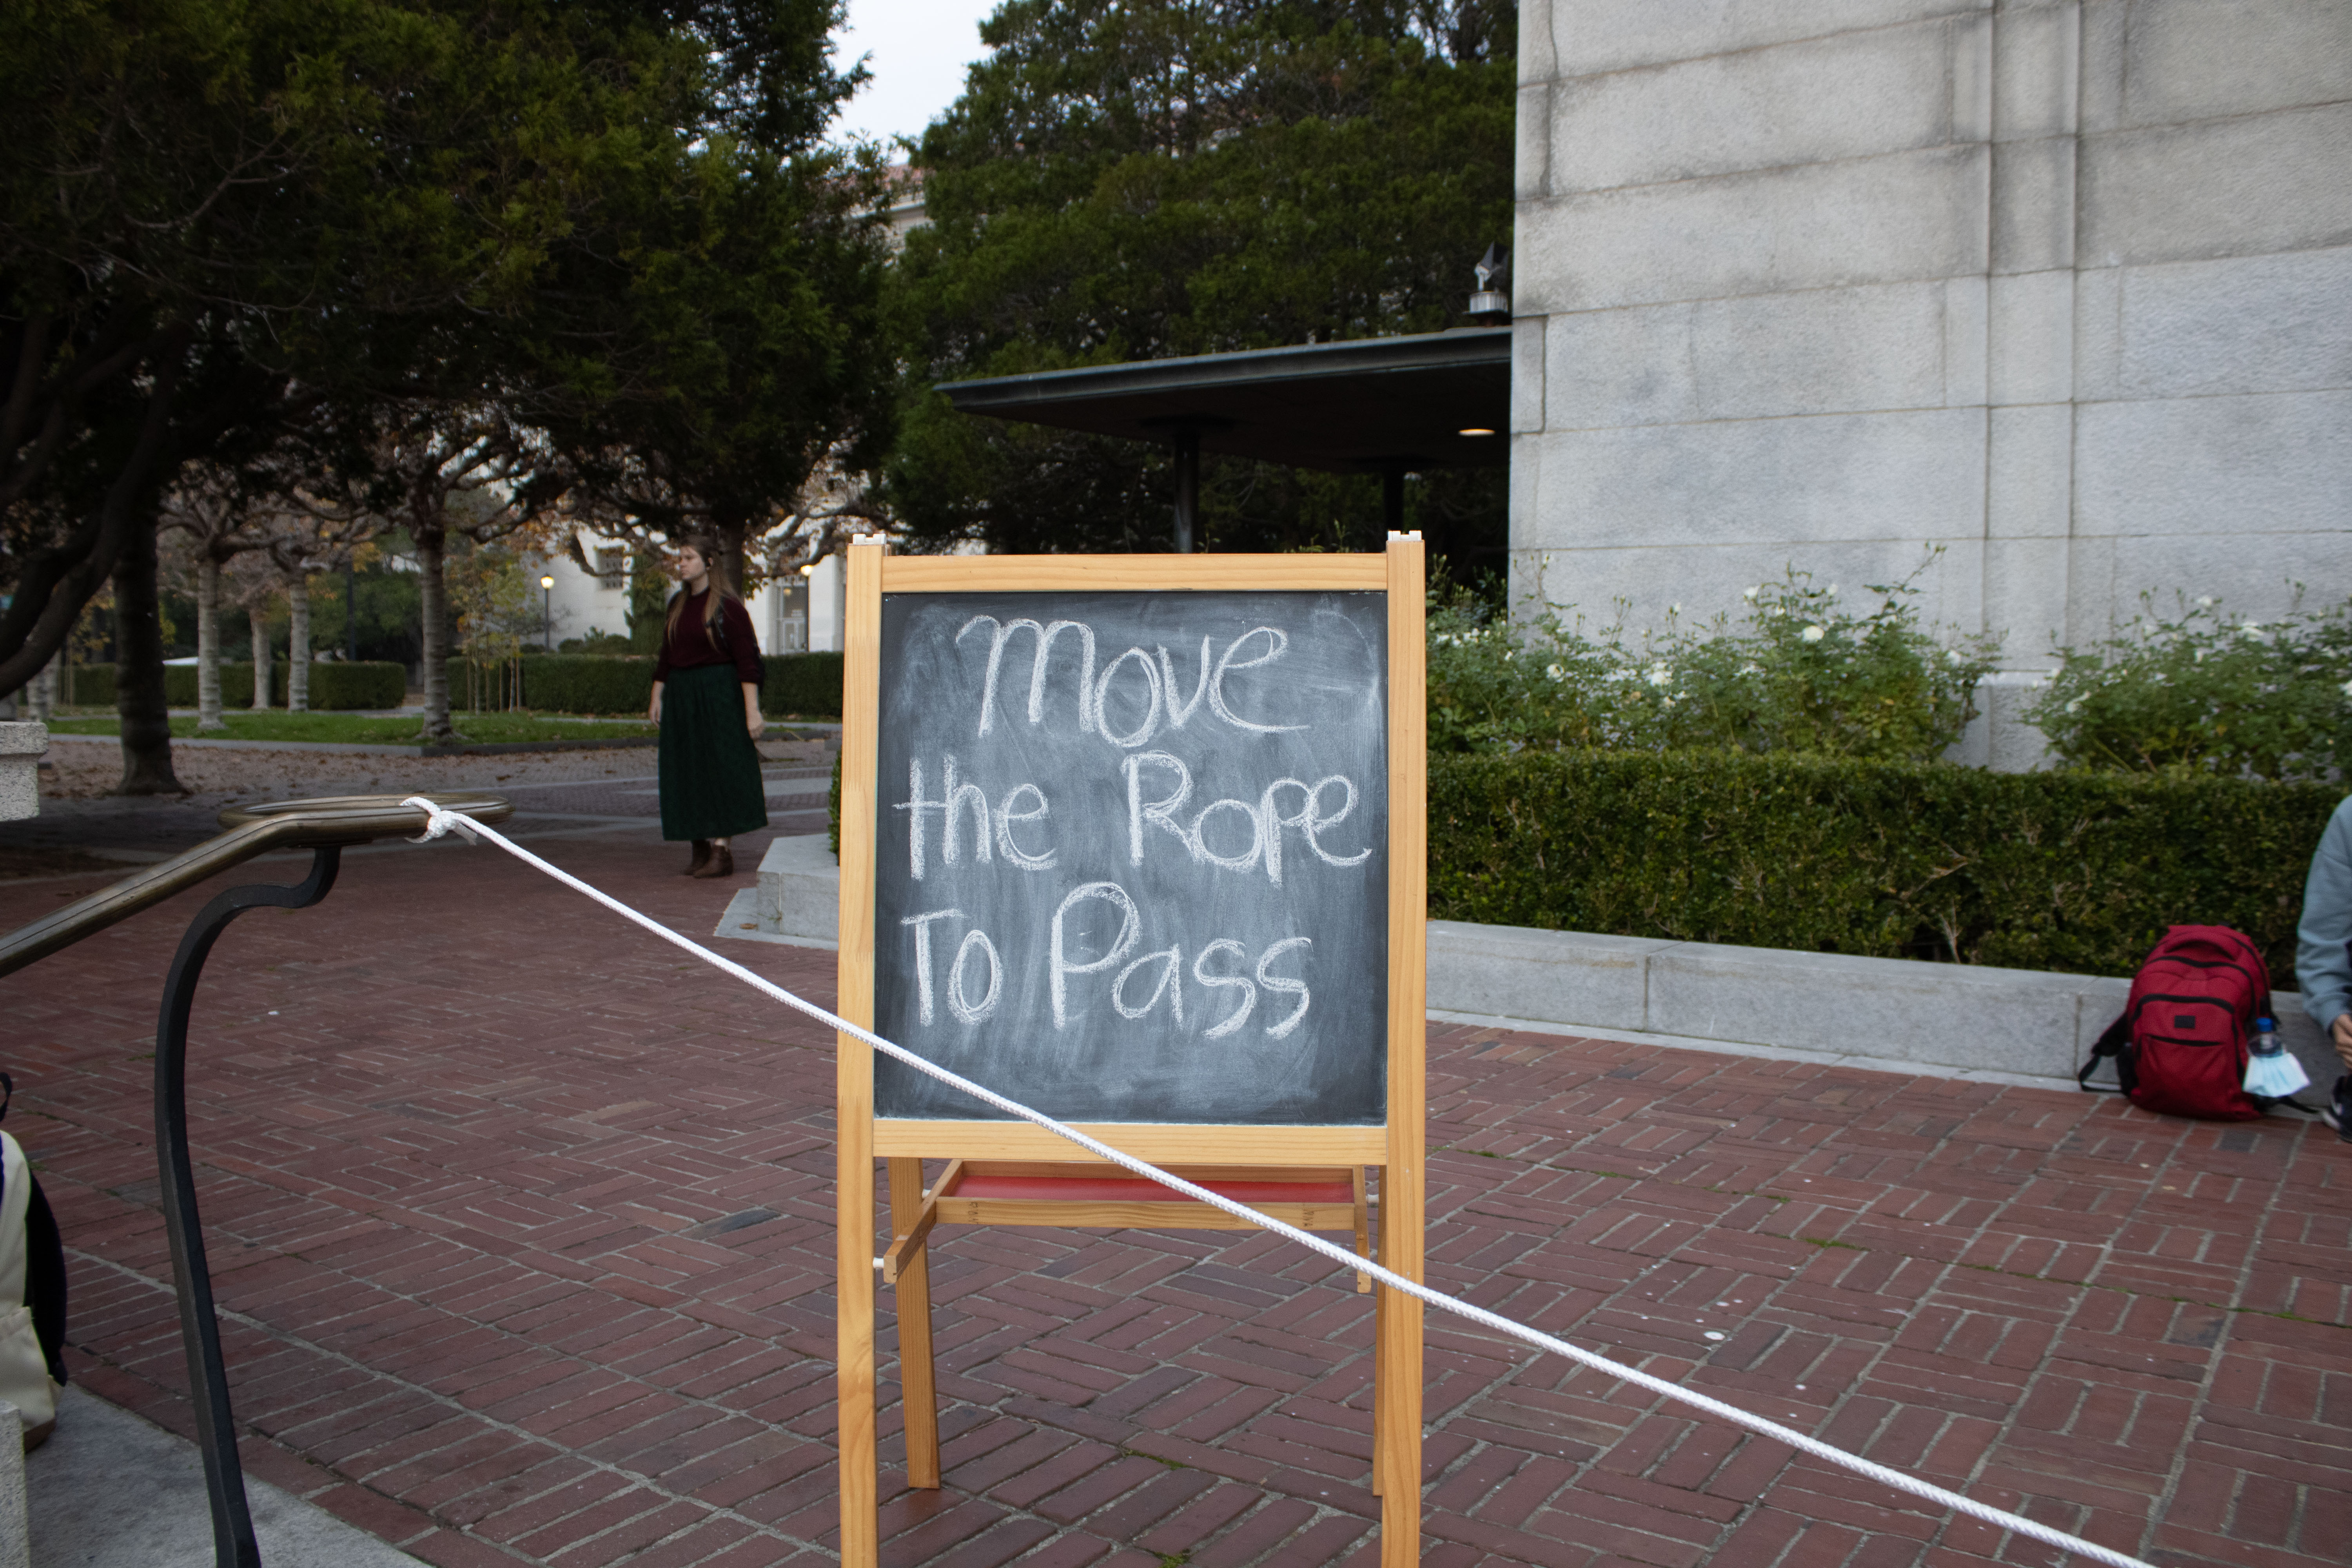 Move
the Rope
To Pass